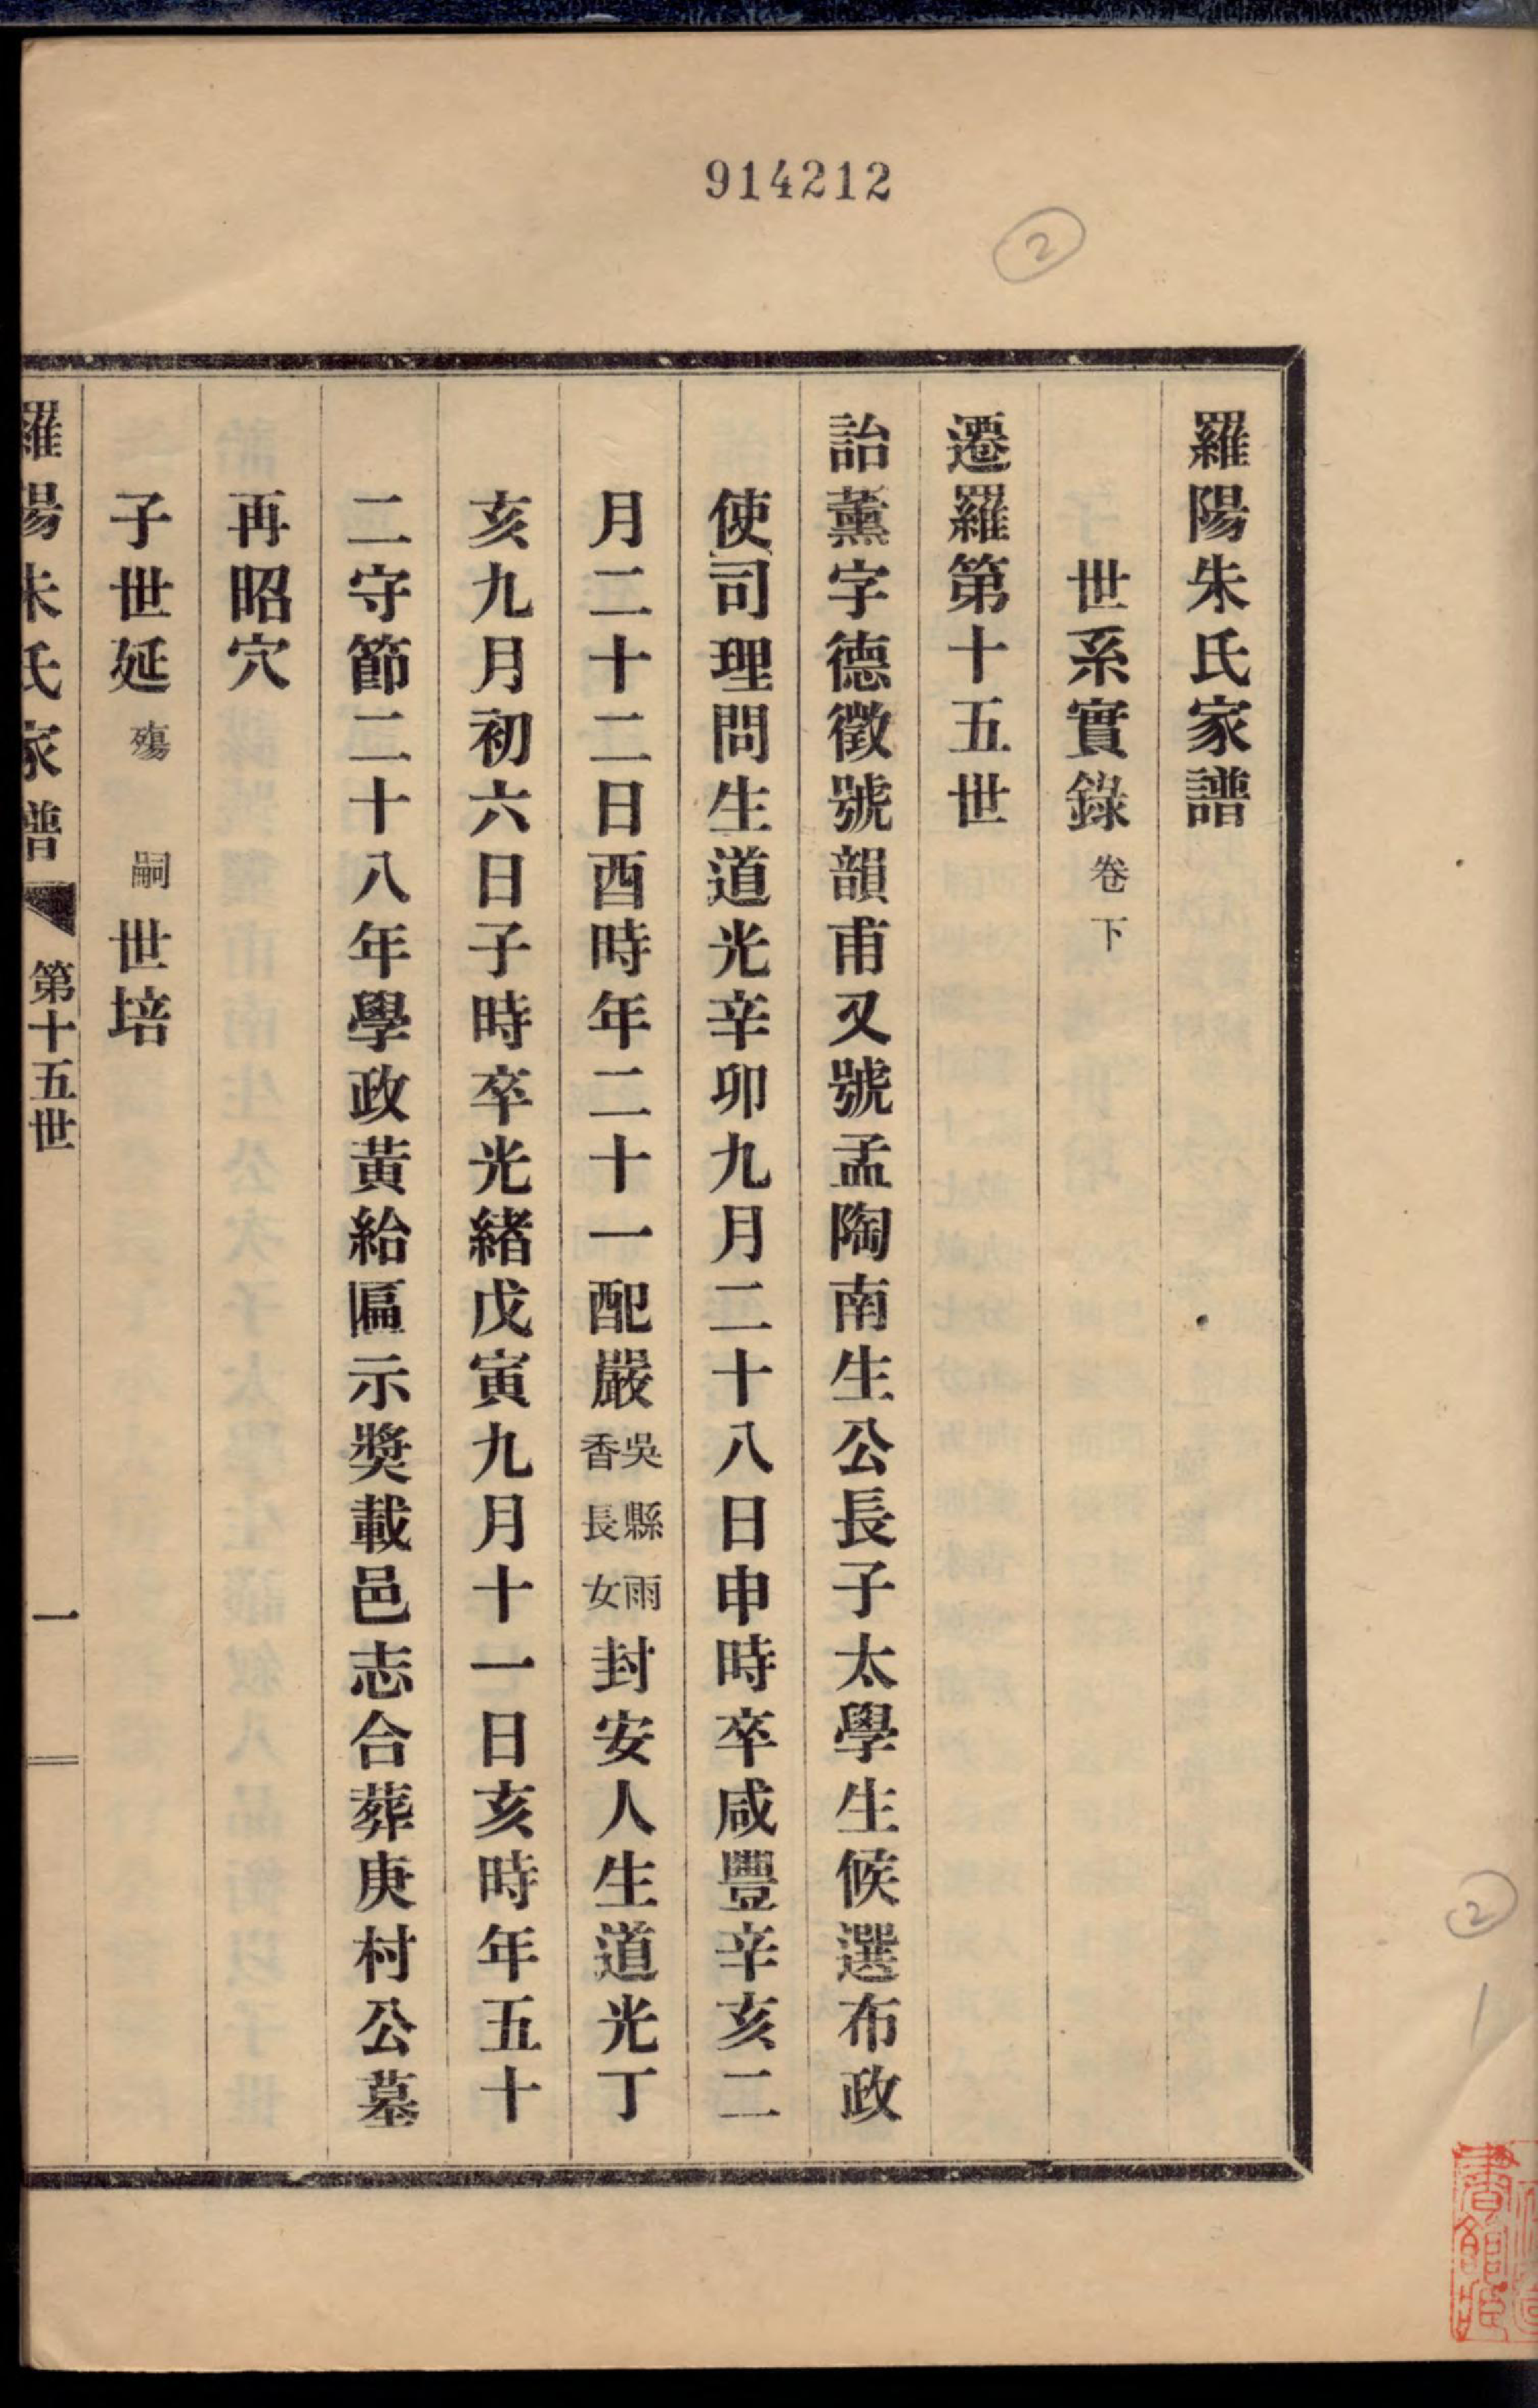 914212
2
羅陽朱氏家譜
世系實錄 卷下
遷羅第十五世
詒薰字德徵號韻甫又號孟陶南生公長子太學生候選布政
使司理問生道光辛卯九月二十八日申時卒咸豐辛亥二
月二十二日酉時年二十一配嚴 吳縣雨香長女 封安人生道光丁
亥九月初六日子時卒光緒戊寅九月十一日亥時年五十
二守節二十八年學政黃給匾示獎載邑志合葬庚村公墓
再昭穴
子世延 殤 嗣 世培
羅陽朱氏家譜 第十五世 一
2
1